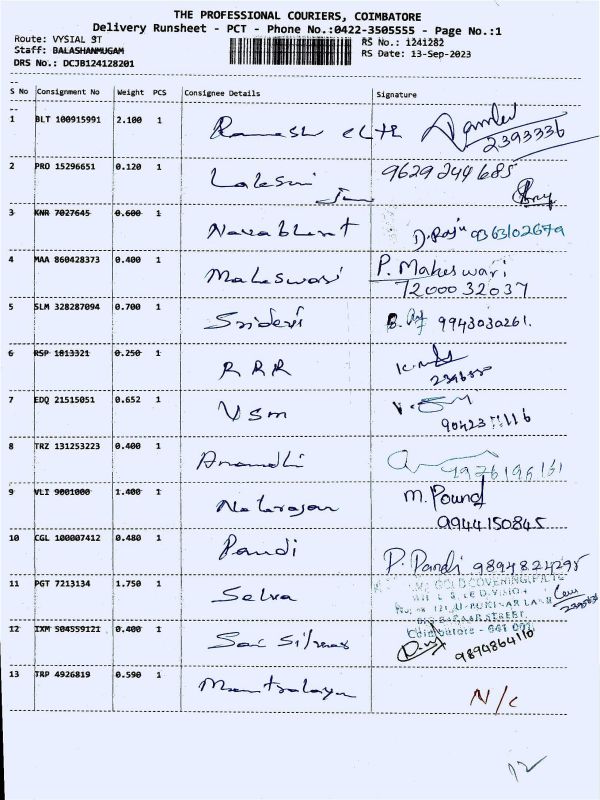 THE PROFESSIONAL COURIERS, COIMBATORE
Delivery Runsheet - PCT - Phone No.:0422-3505555 - Page No.:1
Route: VYSIAL ST
RS No.: 1241282
Staff: BALASHANMUGAM
RS Date: 13-Sep-2023
DRS No.: DCJB124128201
S No Consignment No Weight PCS Consignee Details Signature
1 BLT 100915991 2.100 1 Ramesh
2393336
2 PRO 15296651 0.120 1 Lakshmi 9629244685
3 KNR 7027645 0.600 1 Navabharat D. Raju 9363102679
4 MAA 860428373 0.400 1 Maheswari P. Maheswari
7200032037
5 SLM 328287094 0.700 1 Sridevi 9943030261.
6 RSP 1813321 0.250 1 RRR
7 EDQ 21515051 0.652 1 VSM
8 TRZ 131253223 0.400 1 Anandhi
9 VLI 9001000 1.400 1 Natarajan M. Pound
9944150845
10 CGL 100007412 0.480 1 Pandi P. Pandi 9894824295
11 PGT 7213134 1.750 1 Selva
GOLD COVERING
STREET
Coimbatore - 641 001
12 IXM 504559121 0.400 1 Sai
9894864110
13 TRP 4926819 0.590 1 Mantralaya N/C
12